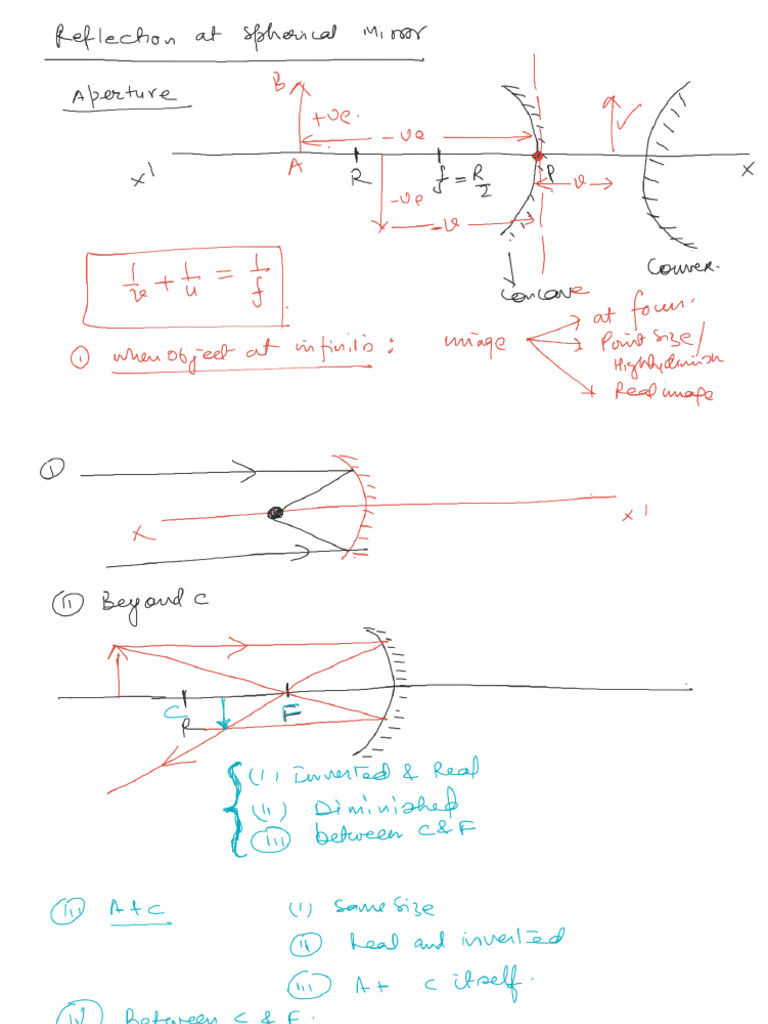 Reflection at Spherical Mirror
Aperture
B
+ve.
-ve
A
R
f = R/2
P
X'
X
-ve
-v
v
Concave
Convex.
1/v + 1/u = 1/f
(i) when object at infinity : image
at focus.
Point size/
Highly diminish
Real image
(i)
X
X'
(ii) Beyond C
C
F
R
(i) Inverted & Real
(ii) Diminished
(iii) between C & F
(iii) At C
(i) Same Size
(ii) Real and inverted
(iii) At C itself.
(iv) Between C & F.